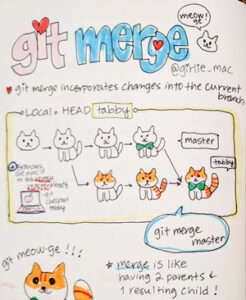 meow!
git merge
@girlie_mac
git merge incorporates changes into the current
branch
Local HEAD tabby
master
tabby
git
checkout
tabby
git merge
master
git meow-ge !!!
* merge is like
having 2 parents &
1 resulting child !